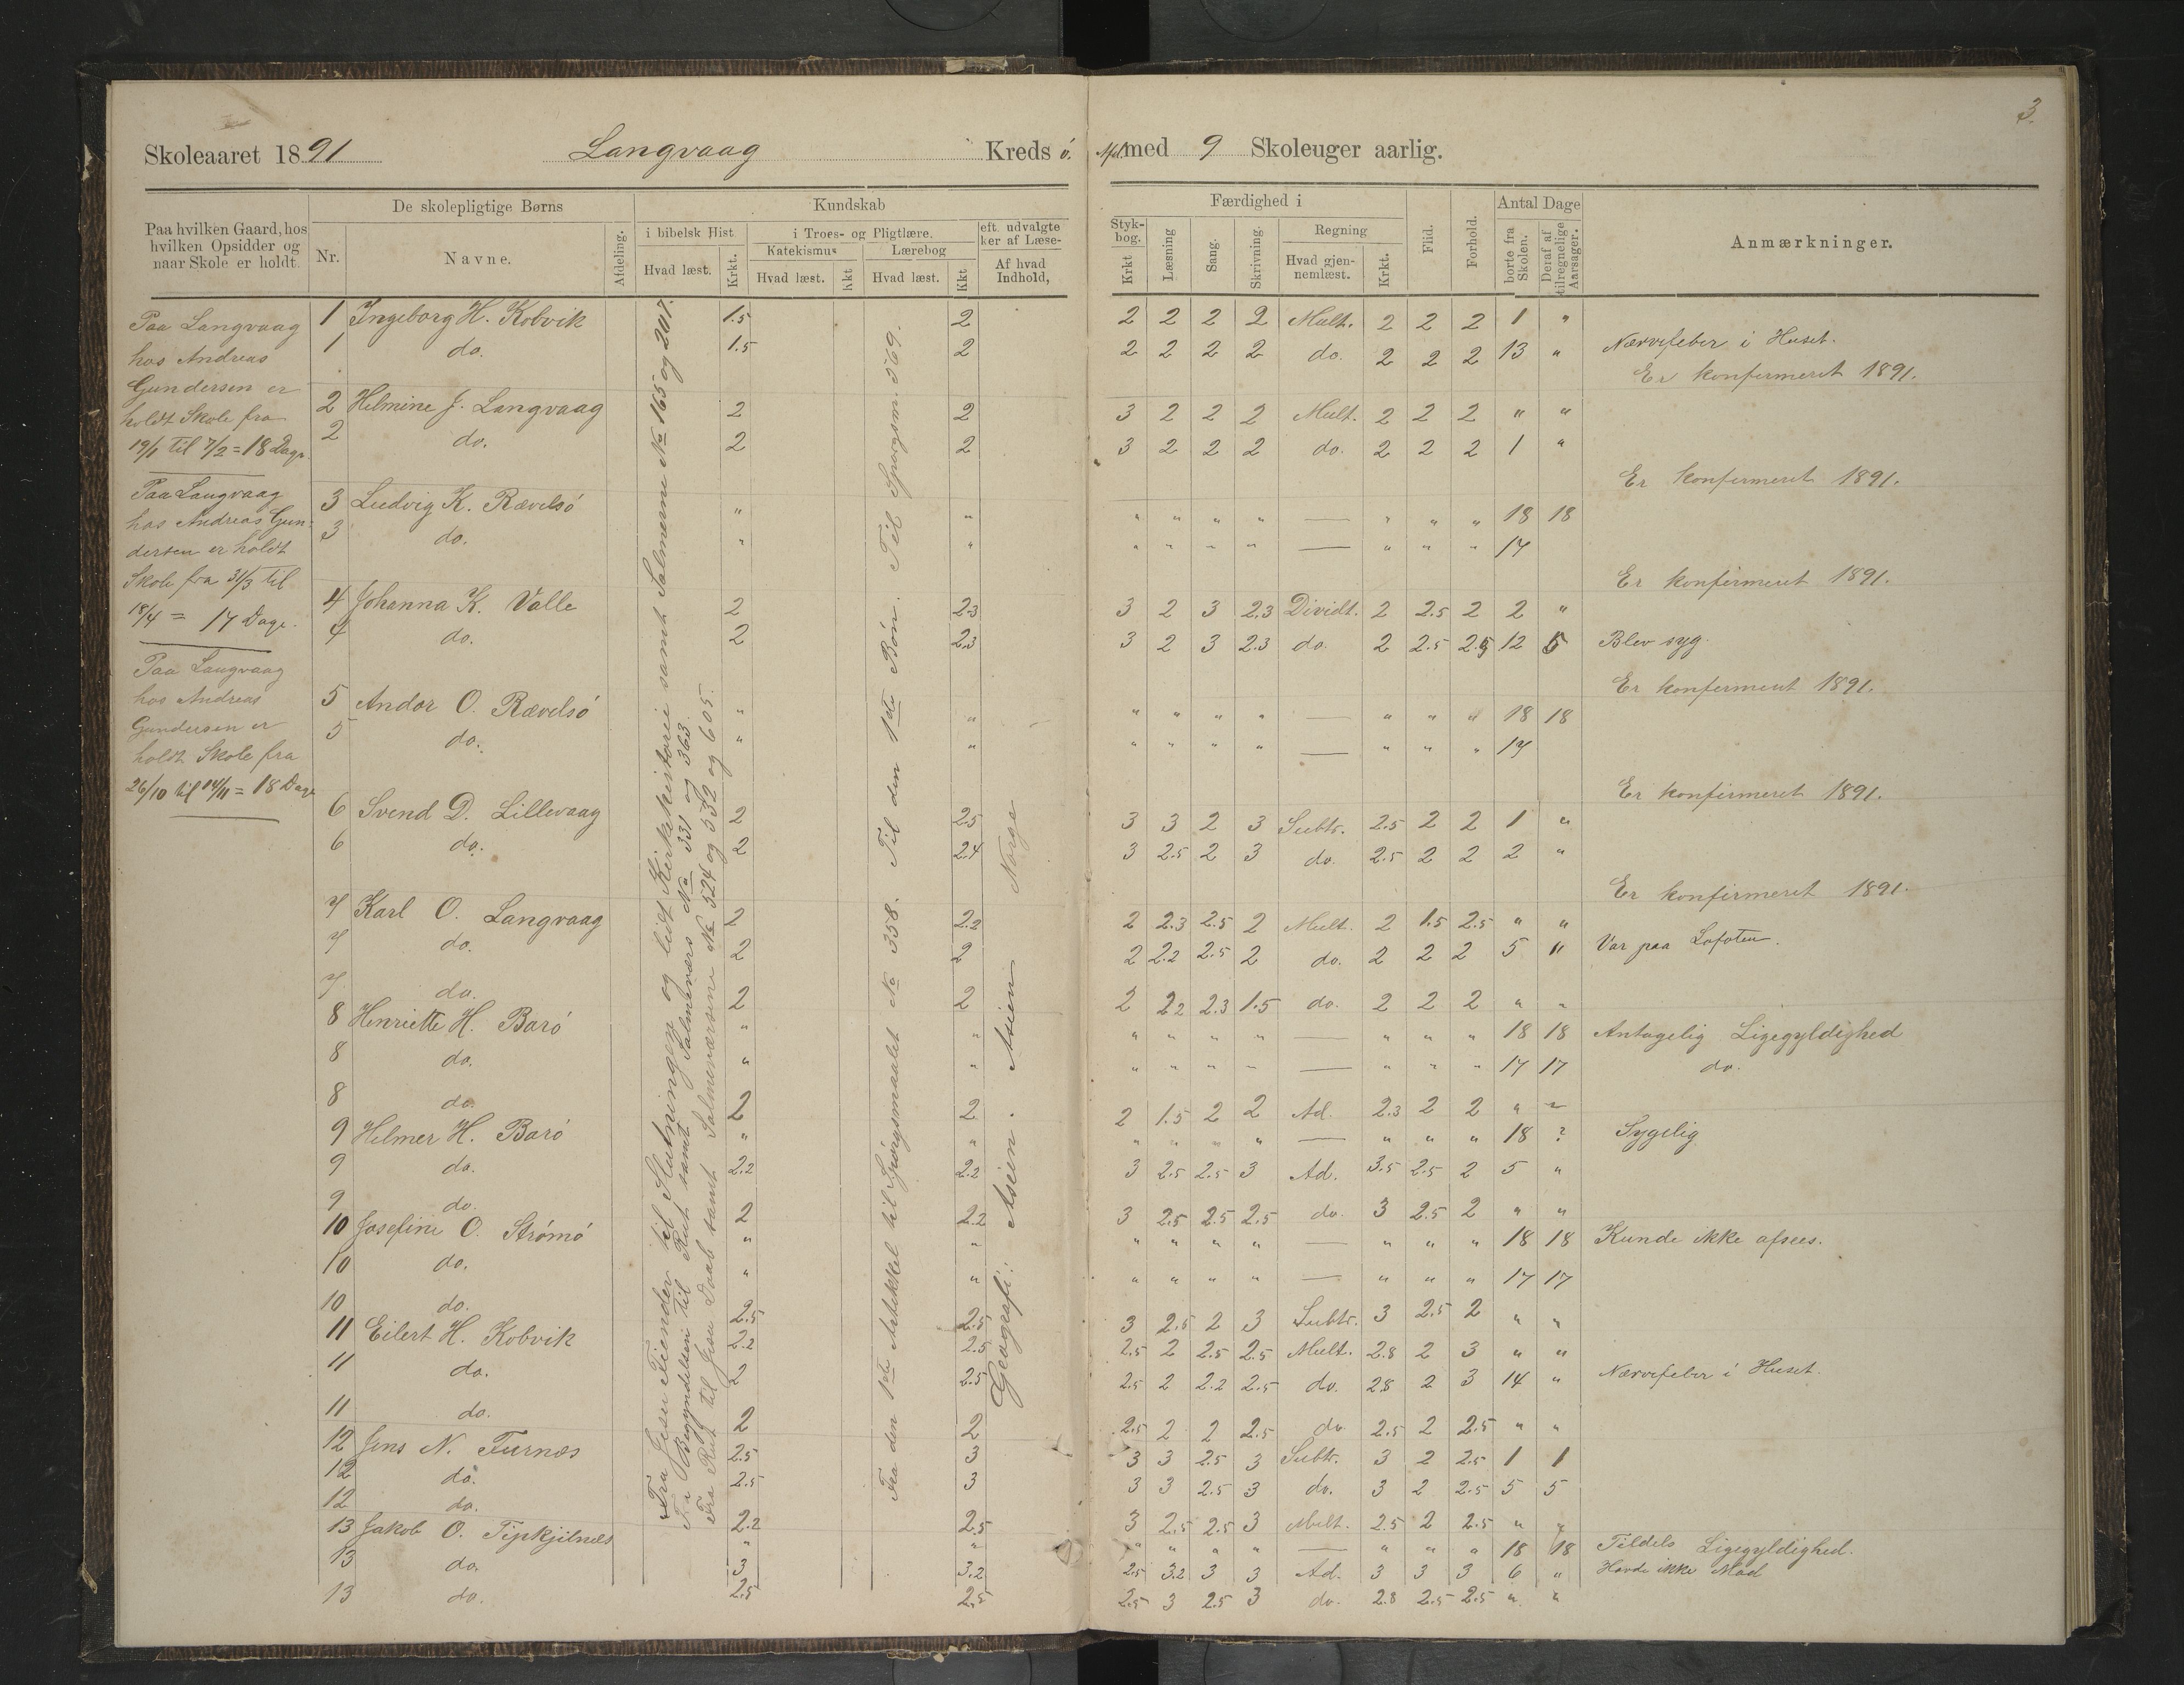 3.
Skoleaaret 1891 Langvaag Kreds ö. Afd. med 9 Skoleuger aarlig.
Paa hvilken Gaard, hos hvilken Opsidder og naar Skole er holdt.
De skolepligtige Børns
Nr. Navne. Afdeling.
Kundskab
i bibelsk Hist. Hvad læst. Krkt.
i Troes- og Pligtlære.
Katekismus Hvad læst. Kkt
Lærebog Hvad læst. Kkt
eft. udvalgte
ker af Læse-
Af hvad Indhold,
Styk-
bog.
Krkt
Færdighed i
Læsning Sang. Skrivning.
Regning Hvad gjen-
nemlæst. Krkt.
Flid. Forhold.
Antal Dage
borte fra Skolen. Deraf af tilregnelige Aarsager.
Anmærkninger.
Paa Langvaag
hos Andreas
Gundersen er
holdt Skole fra
19/1 til 7/2 = 18 Dage.
Paa Langvaag
hos Andreas Gun-
dersen er holdt
Skole fra 31/3 til
18/4 = 17 Dage.
Paa Langvaag
hos Andreas
Gundersen er
holdt Skole fra
26/10 til 14/11 = 18 Dage
Fra Jesu Fiender til Slutningen og lidt Kirkehistorie samt Salmerne No 165 og 207.
Fra Begyndelsen til Rut samt Salmeværs No 331 og 363.
Fra Rut til Jesu Daab samt Salmeversene No 524 og 532 og 605.
Fra den 1ste Artikkel til Spørgsmaalet No 358. Til den 1ste Bøn. Til Spørgsm. 569.
Geografi: Asien. Asien Norge
1 Ingeborg H. Kobvik 1.5 2 2 2 2 2 Mult. 2 2 2 1 "
1 do. 1.5 2 2 2 2 2 do. 2 2 2 13 " Nærvefeber i Huset.
Er konfirmeret 1891.
2 Helmine J. Langvaag 2 2 3 2 2 2 Mult. 2 2 2 " "
2 do. 2 2 3 2 2 2 do. 2 2 2 1 "
Er konfirmeret 1891.
3 Ludvig K. Rævelsö " " " " " " — " " " 18 18
3 do. " " " " " " — " " " 17
Er konfirmeret 1891.
4 Johanna K. Valle 2 2.3 3 2 3 2.3 Dividt. 2 2.5 2 2 "
4 do. 2 2.3 3 2 3 2.3 do. 2 2.5 2.5 12 5 Blev syg.
Er konfirmeret 1891.
5 Andor O. Rævelsö " " " " " " — " " " 18 18
5 do. " " " " " " — " " " 17
Er konfirmeret 1891.
6 Svend D. Lillevaag 2 2.5 3 3 2 3 Subtr. 2.5 2 2 1 "
6 do. 2 2.4 3 2.5 2 3 do. 2.5 2 2 2 "
Er konfirmeret 1891.
7 Karl O. Langvaag 2 2.2 2 2.3 2.5 2 Mult. 2 1.5 2.5 " "
7 do. 2 2 2 2.2 2.5 2 do. 2 2 2 5 " Var paa Lofoten.
7 do. 2 2 2 2.2 2.3 1.5 do. 2 2 2 " "
8 Henriette H. Barö " " " " " " — " " " 18 18 Antagelig Ligegyldighed
8 do. " " " " " " — " " " 17 17 do.
8 do. 2 2 2 1.5 2 2 Ad. 2.3 2 2 " "
9 Hilmer H. Barö " " " " " " — " " " 18 ? Sygelig
9 do. 2.2 2.2 3 2.5 2.5 3 Ad. 3.5 2.5 2 5 "
9 do. 2 2.2 3 2.5 2.5 2.5 do. 3 2.5 2 " "
10 Josefine O. Strömö " " " " " " — " " " 18 18 Kunde ikke afsees.
10 do. " " " " " " — " " " 17 17
10 do. 2.5 2.5 3 2.5 2 3 Subtr. 3 2.5 2 " "
11 Eilert H. Kobvik 2.2 2.5 2.5 2 2.5 2.5 Mult. 2.8 2 3 " "
11 do. 2 2.5 2.5 2 2.2 2.5 do. 2.8 2 3 14 " Nærvefeber i Huset.
11 do. 2 2 2.5 2 2 2.5 do 2.5 2 2.5 " "
12 Jens N. Furnæs 2.5 3 3 3 2.5 3 Subtr. 3 2 2.5 1 1
12 do. 2.5 3 3 3 2.5 3 do. 3 2 2.5 5 5
12 do. 2.2 2.5 3 2.5 2.5 3 Mult. 2.5 2 2.5 " "
13 Jakob O. " " " " " " — " " " 18 18 Tildels Ligegyldighed.
13 do. 3 3.2 2.5 3.2 3 3 Ad. 3 3 3 6 " Havde ikke Mad
13 do. 2.5 2.5 2.5 3 2.5 3 do. 2.8 2.5 2.5 " "